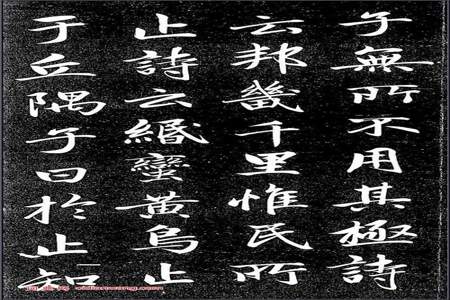 子無所不用其極詩
云邦畿千里惟民所
止詩云緡蠻黃鳥止
于丘隅子曰於止知